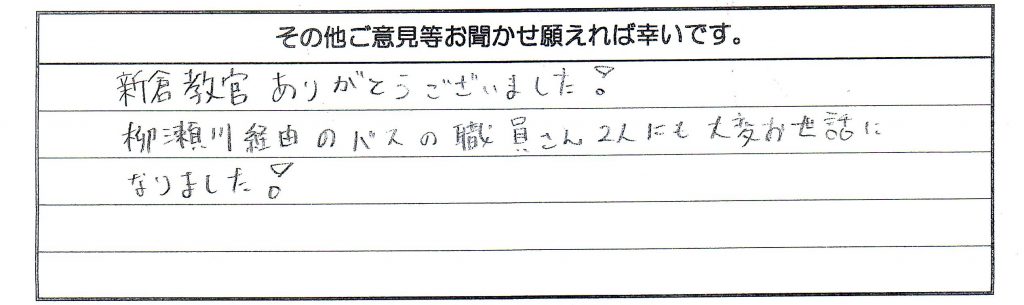 その他ご意見等お聞かせ願えれば幸いです。
新倉教官ありがとうございました!
柳瀬川経由のバスの職員さん2人にも大変お世話に
なりました!